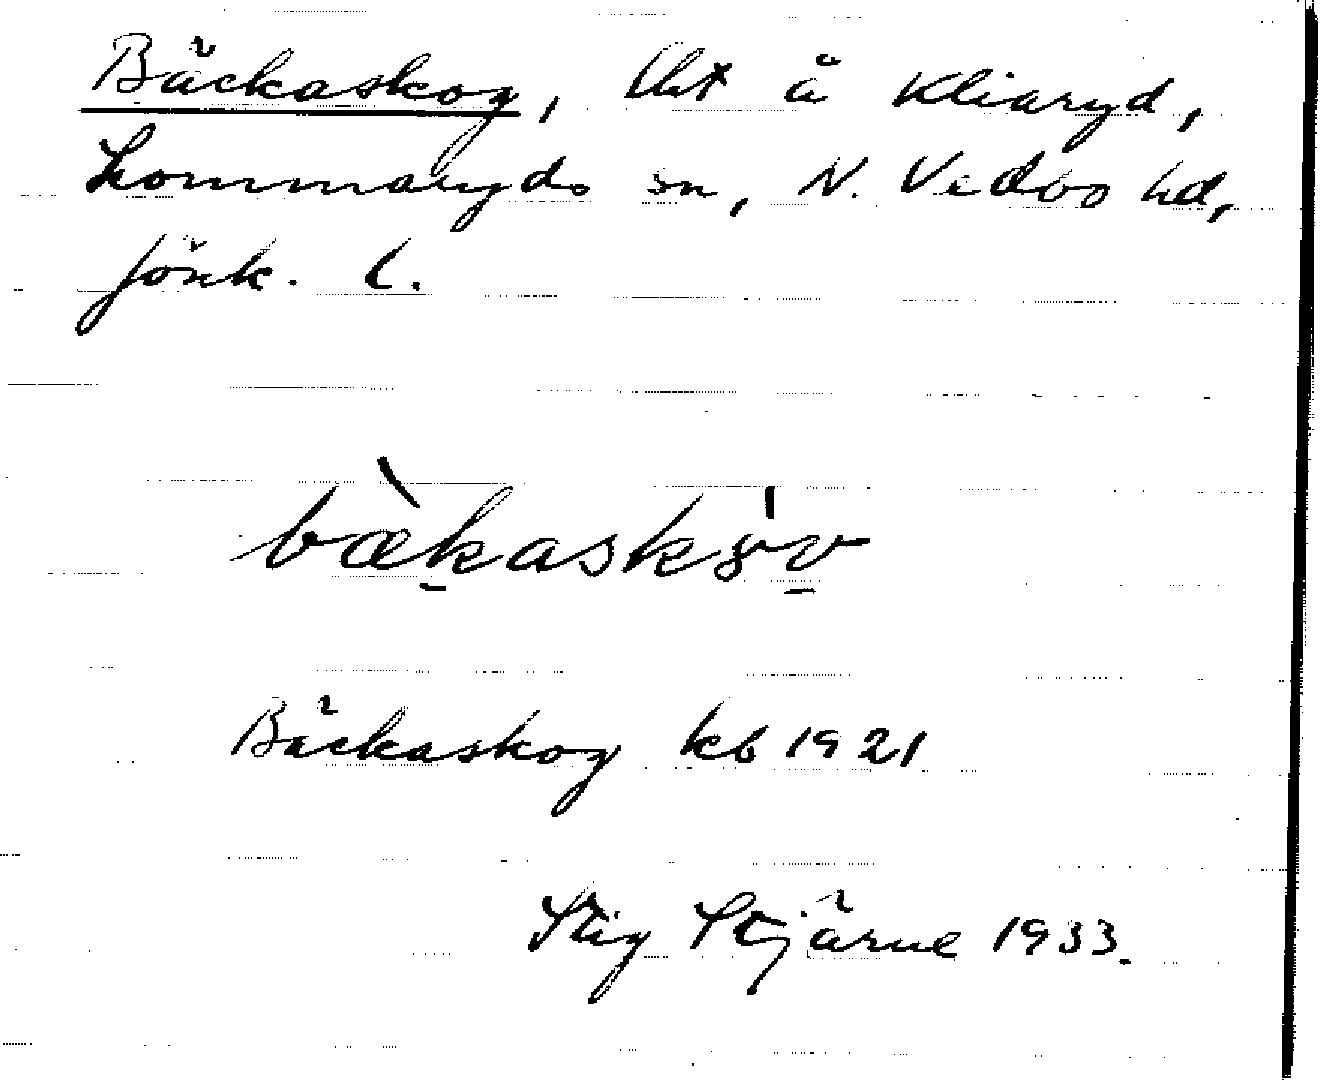 Bäckaskog, lht å Kliaryd,
Lommaryds sn, N. Vedbo hd,
Jönk. l.
bæ̀kaskò̤v
Bäckaskog kb 1921
Stig Stjärne 1933.